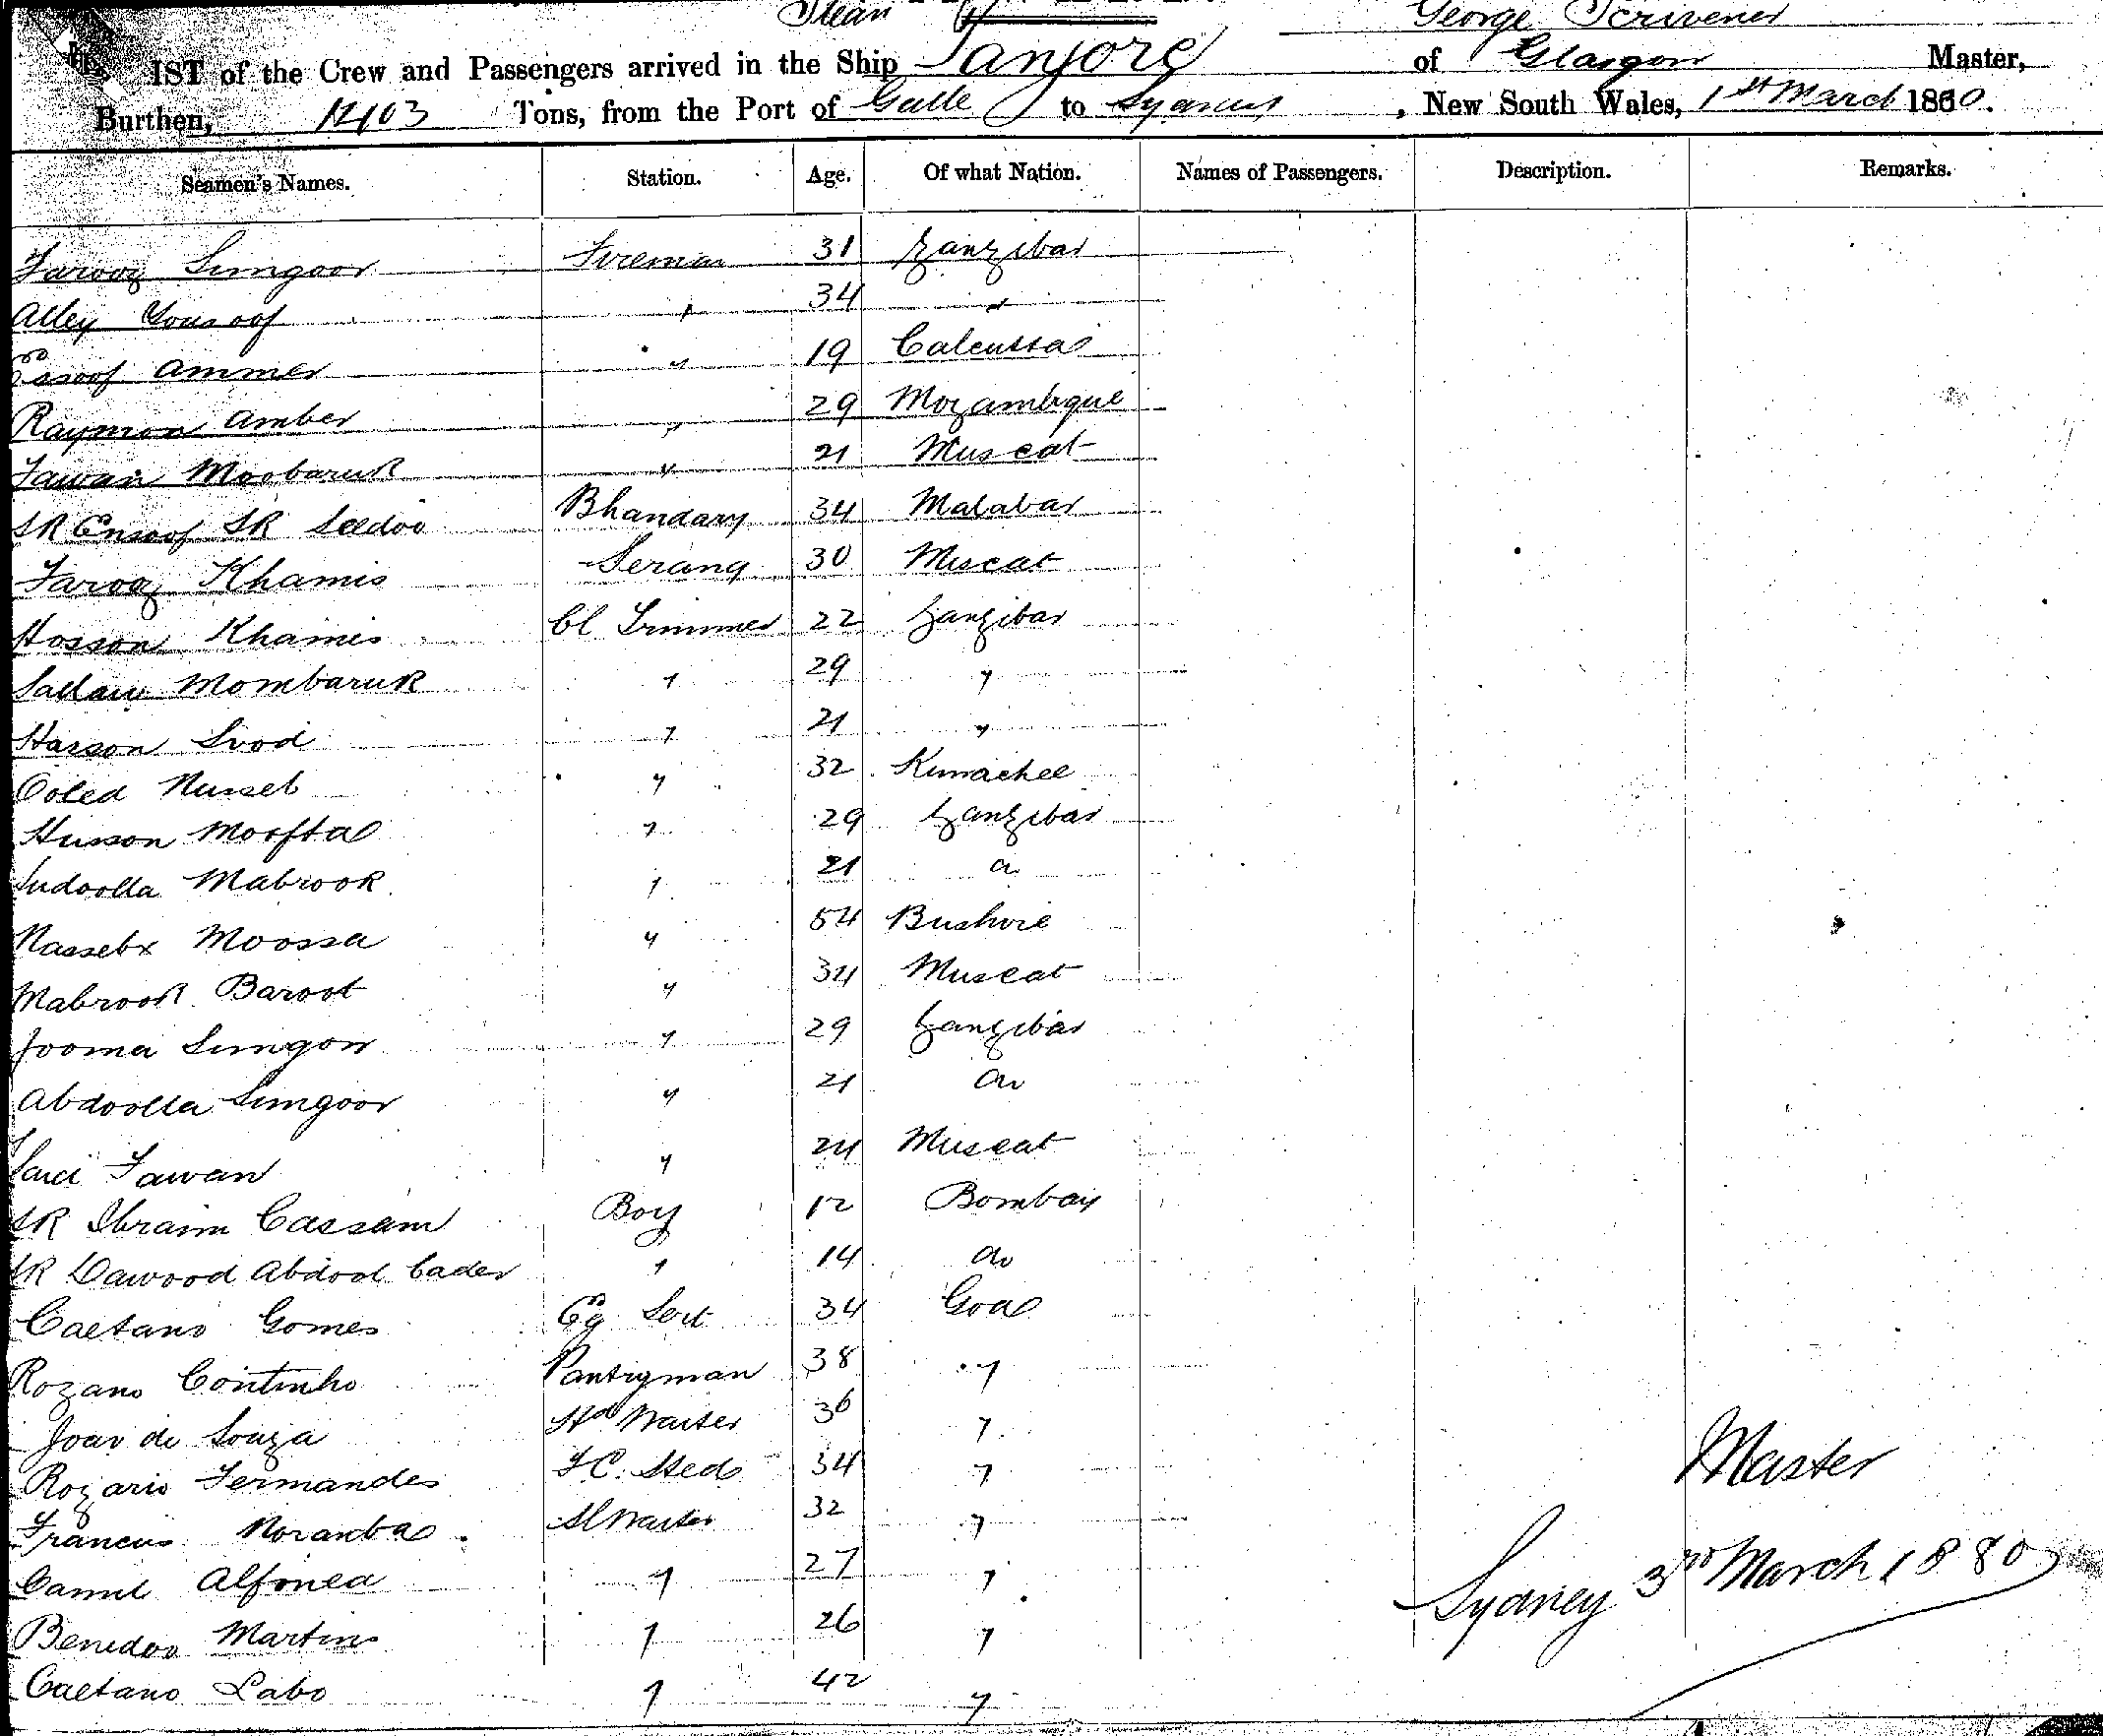 Steam George Scrivener
LIST of the Crew and Passengers arrived in the Ship Tanjore of Glasgow Master,
Burthen, 1403 Tons, from the Port of Galle to Sydney, New South Wales, 1st March 1880.
Seamen's Names. Station. Age. Of what Nation. Names of Passengers. Description. Remarks.
Farooz Sungoor Fireman 31 Zanzibar
Alley Yousoof " 34 "
Esoof Ammer " 19 Calcutta
Raymon Amber " 29 Mozambique
Fawan Moobaruk " 21 Muscat
SR Ensoof SR Seedoo Bhandary 34 Malabar
Farooz Khamis Serang 30 Muscat
Hosson Khamis Cl Trimmer 22 Zanzibar
Sallam Mombaruk " 29 "
Hasson Svod " 21 "
Coled Nusseb " 32 Kurrachee
Husson Moofta " 29 Zanzibar
Mabrook " 21 do
Nasseb Moossa " 54 Bushire
Mabrook Baroot " 34 Muscat
Jooma Sungoor " 29 Zanzibar
Abdoolla Sungoor " 21 do
Fawan " 24 Muscat
SR Ibraim Cassam Boy 12 Bombay
SR Dawood Abdool Cader " 14 do
Caetano Gomes 34 Goa
Rozano Coutinho Pantryman 38 "
Joao de Souza Hd Waiter 36 "
Rozario Fernandes F C. Sted 34 "
Francis Noranha Sl Waiter 32 "
Camil Alfonea " 27 "
Master
Sydney 3rd March 1880
Martins " 26 "
Caetano Labo " 42 "